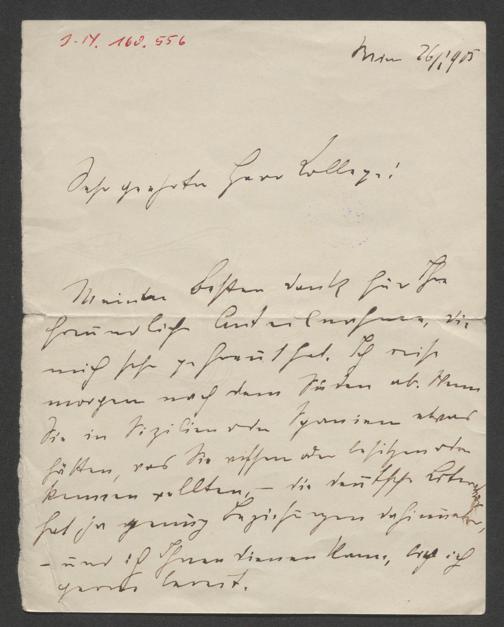 I.N. 168.556
Wien 26/I 905
Sehr geehrter Herr College!
Meinen besten Dank für Ihre
freundliche Anteilnahme, die
mich sehr gefreut hat. Ich reise
morgen nach dem Süden ab. Wenn
Sie in Sizilien oder Spanien etwas
hätten, was Sie wissen oder besitzen oder
kennen wollten, – die deutsche
hat ja genug Beziehungen dahinunter,
– und ich Ihnen dienen kann, bin ich
gerne bereit.